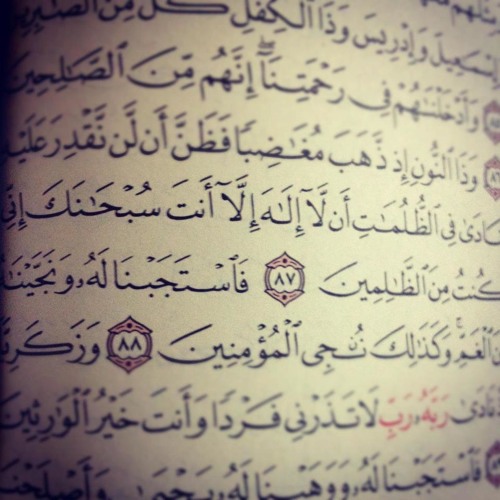 وَإِدْرِيسَ وَذَا ٱلْكِفْلِ كُلٌّ مِّنَ ٱلصَّٰبِرِينَ
وَأَدْخَلْنَٰهُمْ فِى رَحْمَتِنَآ إِنَّهُم مِّنَ ٱلصَّٰلِحِينَ
وَذَا ٱلنُّونِ إِذ ذَّهَبَ مُغَٰضِبًا فَظَنَّ أَن لَّن نَّقْدِرَ عَلَيْهِ
فِى ٱلظُّلُمَٰتِ أَن لَّآ إِلَٰهَ إِلَّآ أَنتَ سُبْحَٰنَكَ إِنِّى
كُنتُ مِنَ ٱلظَّٰلِمِينَ ٨٧ فَٱسْتَجَبْنَا لَهُۥ وَنَجَّيْنَٰهُ
ٱلْغَمِّ وَكَذَٰلِكَ نُۨجِى ٱلْمُؤْمِنِينَ ٨٨ وَزَكَرِيَّا
رَبَّهُۥ رَبِّ لَا تَذَرْنِى فَرْدًا وَأَنتَ خَيْرُ ٱلْوَٰرِثِينَ
فَٱسْتَجَبْنَا لَهُۥ وَوَهَبْنَا لَهُۥ يَحْيَىٰ وَأَصْلَحْنَا